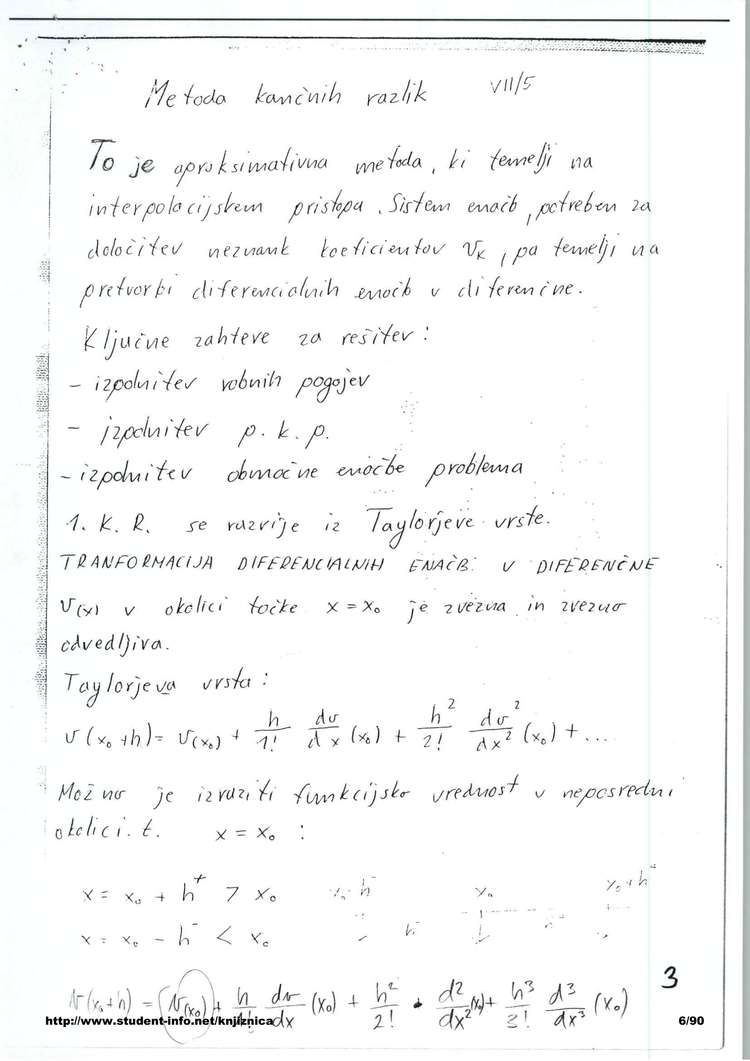 Metoda končnih razlik VII/5
To je aproksimativna metoda, ki temelji na
interpolacijskem pristopa. Sistem enačb, potreben za
določitev neznank koeficientov v_K, pa temelji na
pretvorbi diferencialnih enačb v diferenčne.
Ključne zahteve za rešitev:
- izpolnitev robnih pogojev
- izpolnitev p. k. p.
- izpolnitev območne enočbe problema
1. K. R. se razvije iz Taylorjeve vrste.
TRANFORMACIJA DIFERENCIALNIH ENAČB V DIFERENČNE
v(x) v okolici točke x = x₀ je zvezna in zvezno
odvedljiva.
Taylorjeva vrsta:
v(x₀+h) = v(x₀) + h/1! dv/dx (x₀) + h²/2! dv²/dx² (x₀) + ....
Možno je izraziti funkcijsko vrednost v neposredni
okolici t. x = x₀ :
x = x₀ + h⁺ > x₀ x₀-h⁻ x₀ x₀+h⁺
x = x₀ - h⁻ < x₀ h⁻
v(x₀+h) = v(x₀) + h/1! dv/dx (x₀) + h²/2! · d²/dx² (x₀) + h³/3! d³/dx³ (x₀)
3
http://www.student-info.net/knjiznica 6/90